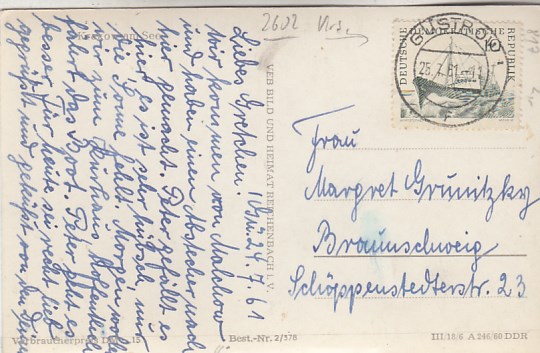 2602 Krs.
Krakow am See
Güs 24.7.61
Liebes Gretchen!
Wir kommen von Malchow
und haben einen Abstecher nach
hier gemacht. Peter gefällt es
hier, es ist sehr hübsch, nur
die Sonne fehlt. Morgen wollen
wir zum Kurhaus, hoffentlich
fährt das Boot. Peter geht es
besser. Für heute sei recht lieb
gegrüßt und geküßt von Deiner
Verbraucherpreis DM 15
Best.-Nr. 2/378
VEB BILD UND HEIMAT REICHENBACH i. V.
DEUTSCHE DEMOKRATISCHE REPUBLIK
10
GÜSTROW
25.7.61
Frau
Margret Grunitzky
Braunschweig
Schöppenstedterstr. 23
III/18/6 A 246/60 DDR